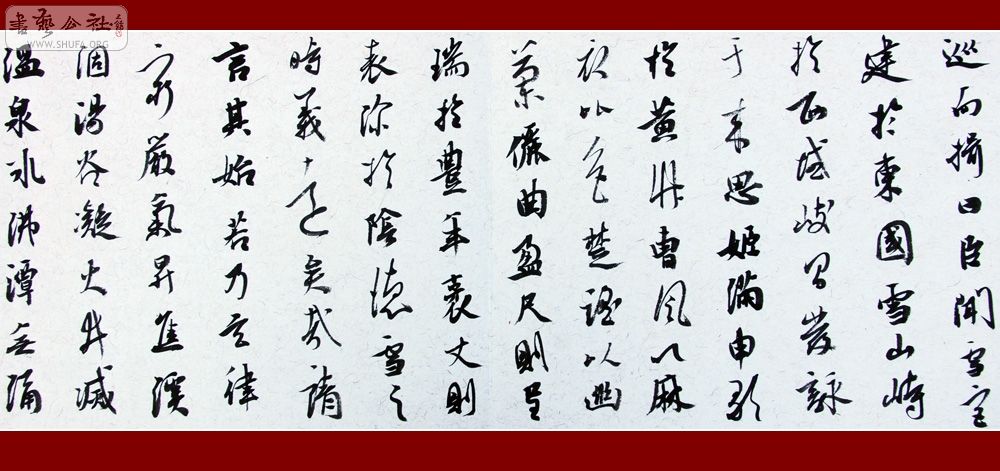 書藝公社
WWW.SHUFA.ORG
巡而揖曰臣聞雪宮
建於東國雪山峙
於西域岐昌發詠
于來思姬滿申歌
於黃竹曹風以麻
衣比色楚謠以幽
蘭儷曲盈尺則呈
瑞於豊年袤丈則
表沴於陰德雪之
時義遠矣哉請
言其始若乃玄律
窮嚴氣昇焦溪
涸湯谷凝火井滅
溫泉冰沸潭無涌